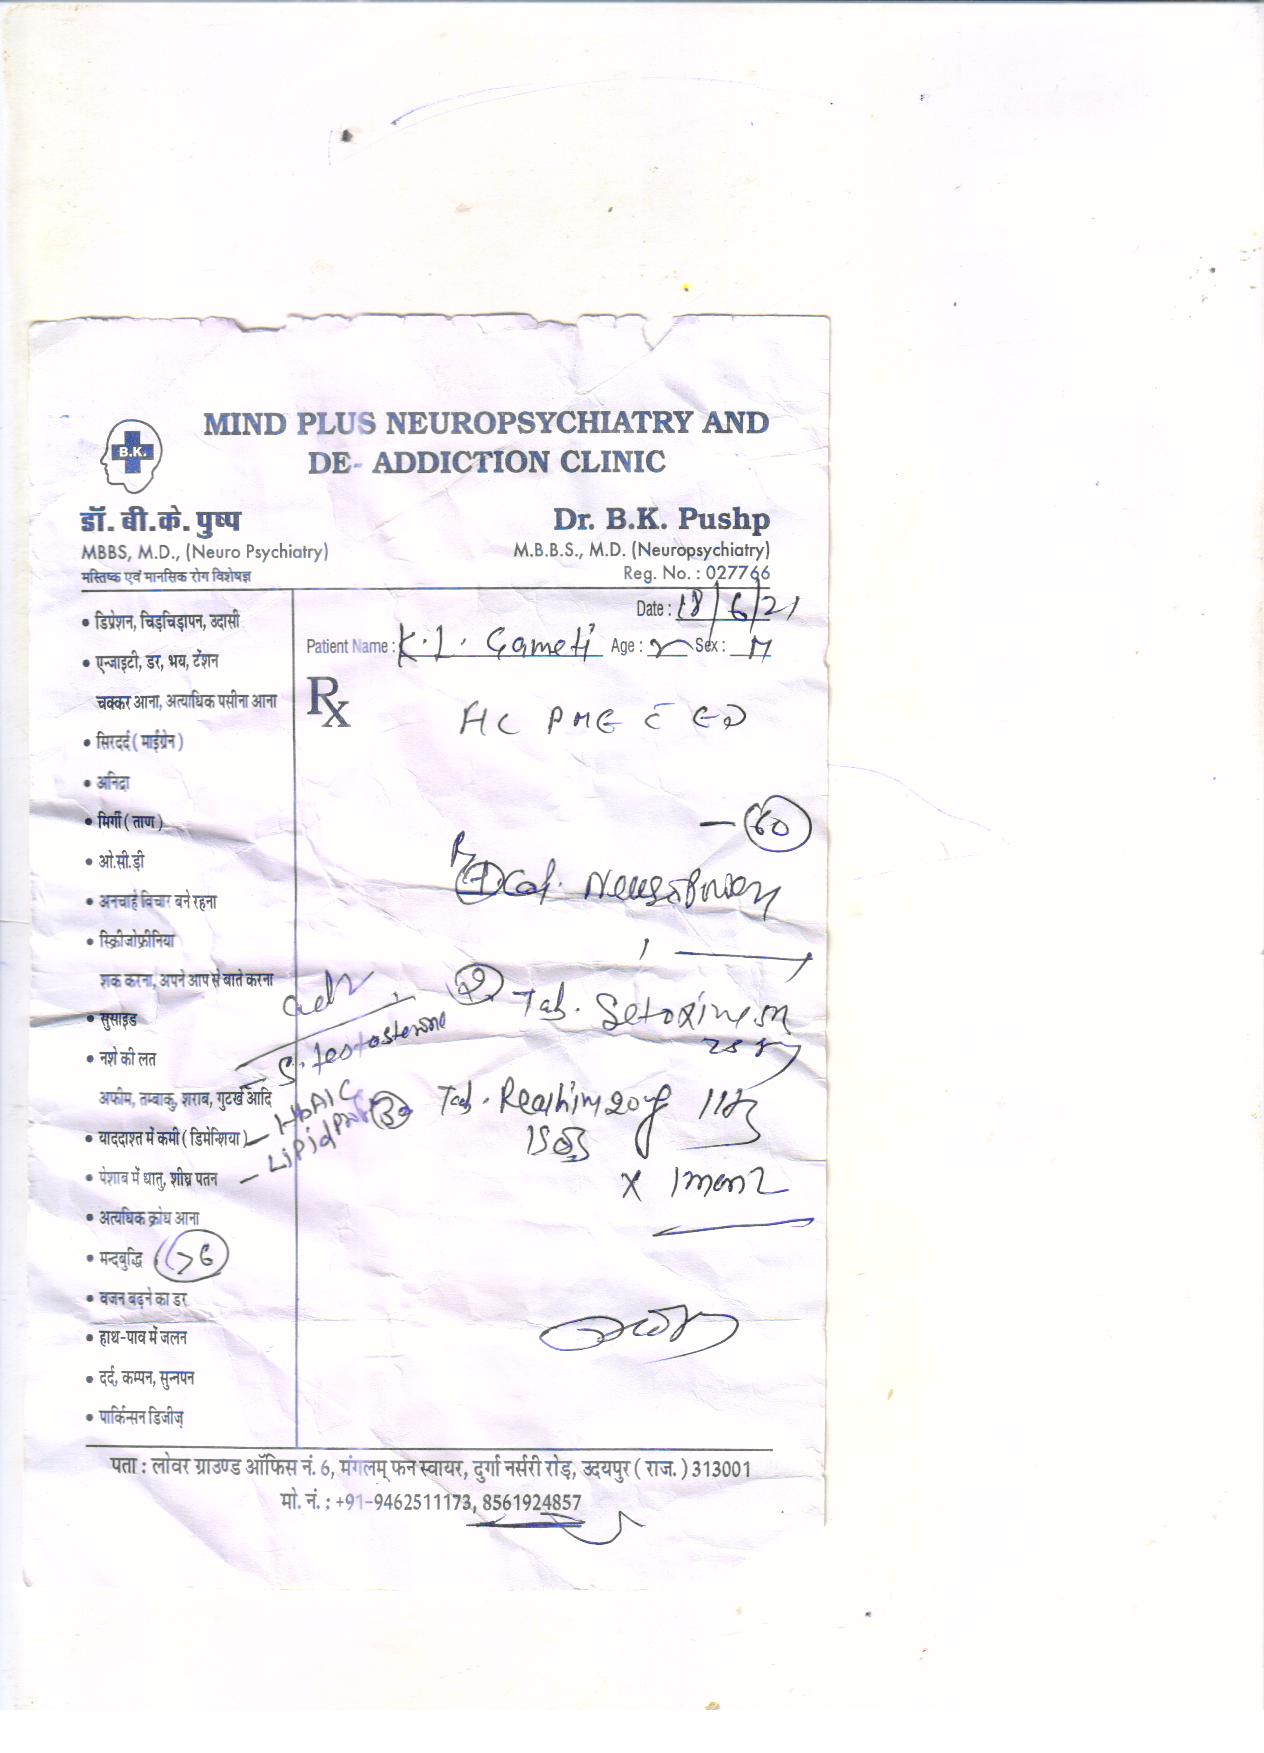 MIND PLUS NEUROPSYCHIATRY AND
DE- ADDICTION CLINIC
B.K.
डॉ. बी.के. पुष्प
MBBS, M.D., (Neuro Psychiatry)
मस्तिष्क एवं मानसिक रोग विशेषज्ञ
Dr. B.K. Pushp
M.B.B.S., M.D. (Neuropsychiatry)
Reg. No. : 027766
Date : 18/6/21
Patient Name : K.L. Gameti Age : Sex : M
Rx
• डिप्रेशन, चिड़चिड़ापन, उदासी
• एन्जाइटी, डर, भय, टेंशन
चक्कर आना, अत्यधिक पसीना आना
• सिरदर्द ( माईग्रेन )
• अनिद्रा
• मिर्गी ( ताण )
• ओ.सी.ड़ी
• अनचाहे विचार बने रहना
• स्क्रिजोफ्रीनिया
शक करना, अपने आप से बाते करना
• सुसाइड
• नशे की लत
अफीम, तम्बाकु, शराब, गुटखे आदि
• याददाश्त में कमी ( डिमेन्शिया )
• पेशाब में धातु, शीघ्र पतन
• अत्यधिक क्रोध आना
• मन्दबुद्धि
• वजन बढ़ने का डर
• हाथ-पाव में जलन
• दर्द, कम्पन, सुन्नपन
• पार्किन्सन डिजीज़
60
1 Cap.
2. Tab.
3 Tab. 20
x 1 mon
Adv
S. testosterone
- HbA1C
- Lipid
>6
पता : लोवर ग्राउण्ड ऑफिस नं. 6, मंगलम् फन स्वायर, दुर्गा नर्सरी रोड़, उदयपुर ( राज. ) 313001
मो. नं. : +91-9462511173, 8561924857